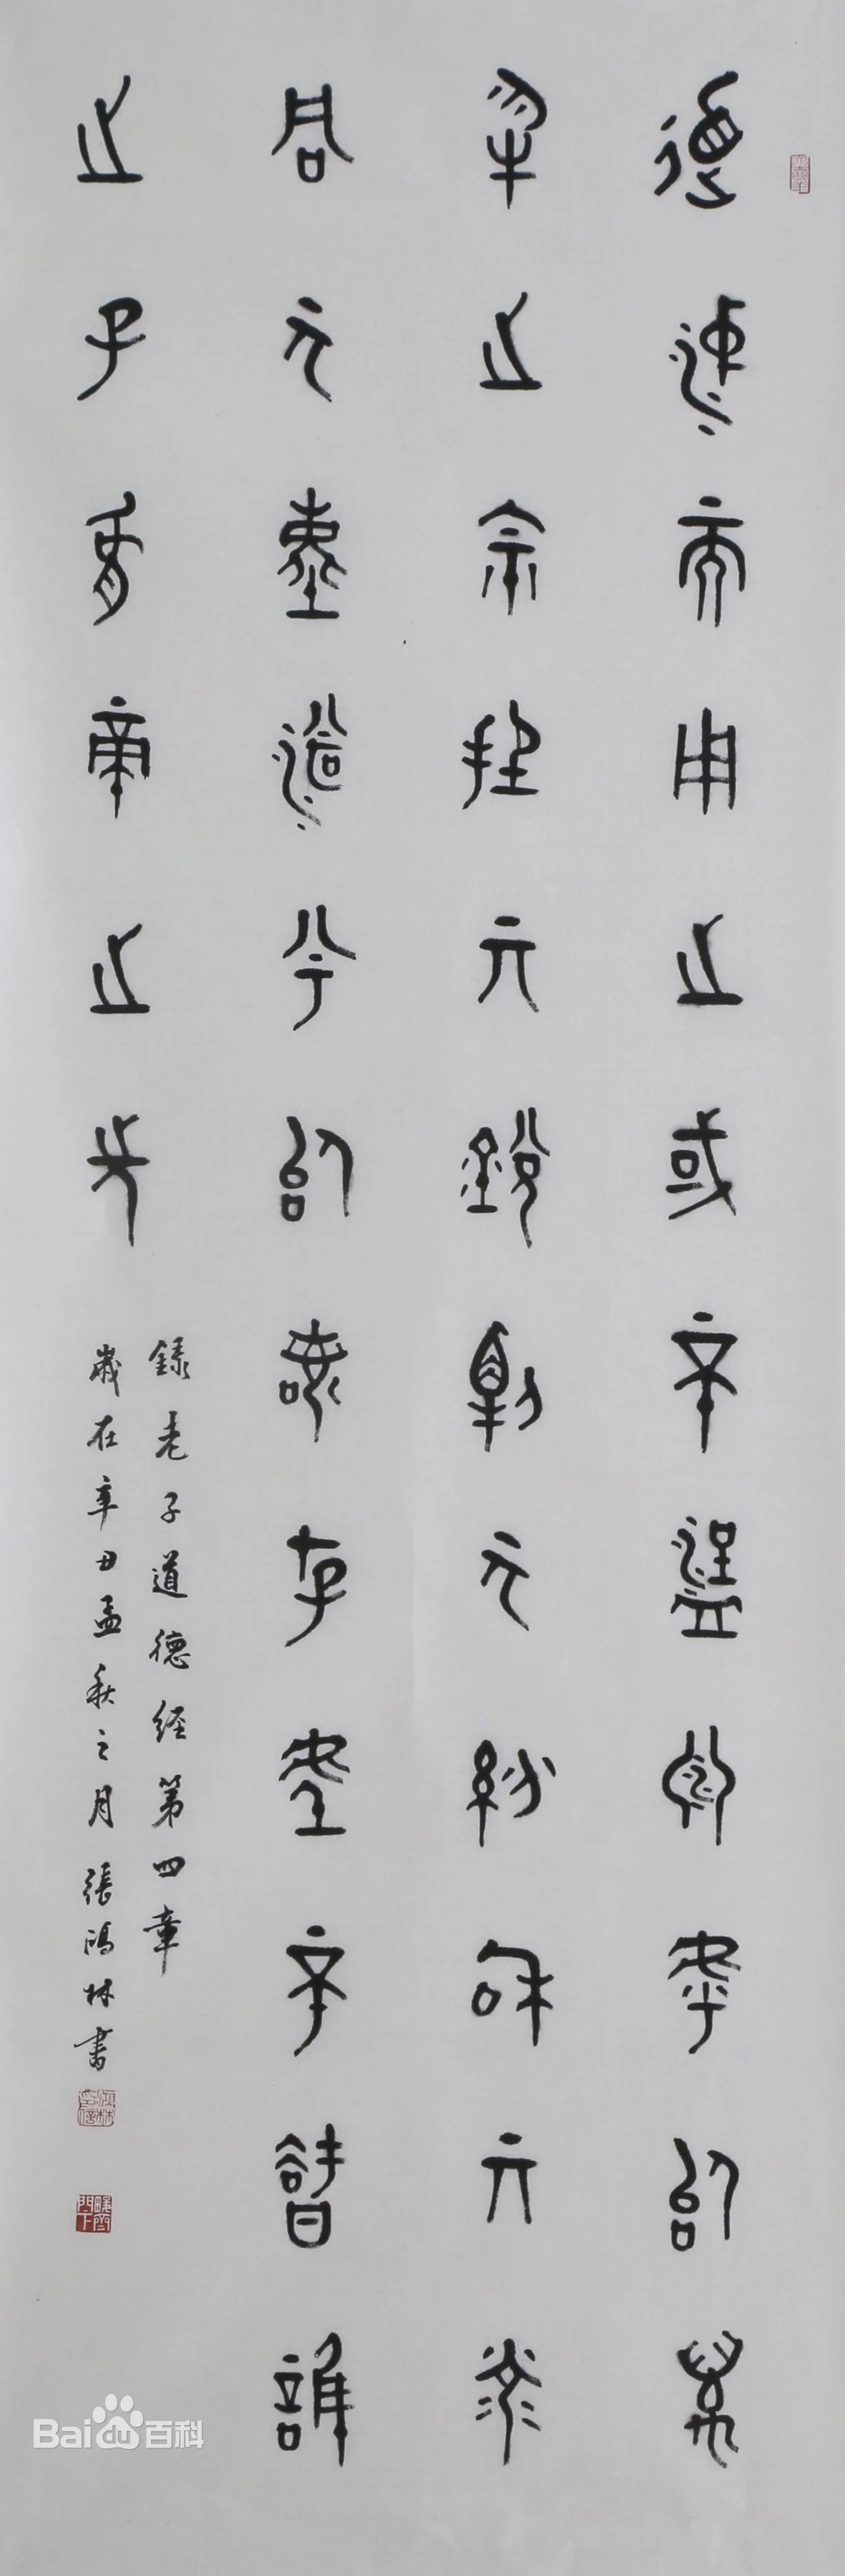 道沖而用之或不盈淵乎似萬
物之宗挫其銳解其紛和其光
同其塵湛兮似或存吾不知誰
之子象帝之先
錄老子道德經第四章
歲在辛丑孟秋之月張鴻林書
Baidu百科